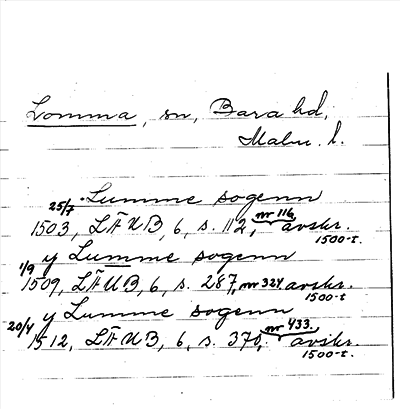 Lomma, sn, Bara hd,
Malm. l.
Lumme sogenn
25/7 1503, LÄUB, 6, s. 112, nr 116, avskr. 1500-t.
y Lumme sogenn
1/9 1509, LÄUB, 6, s. 287, nr 324 avskr. 1500-t.
y Lumme sogenn
20/4 1512, LÄUB, 6, s. 370, nr 433. avskr. 1500-t.